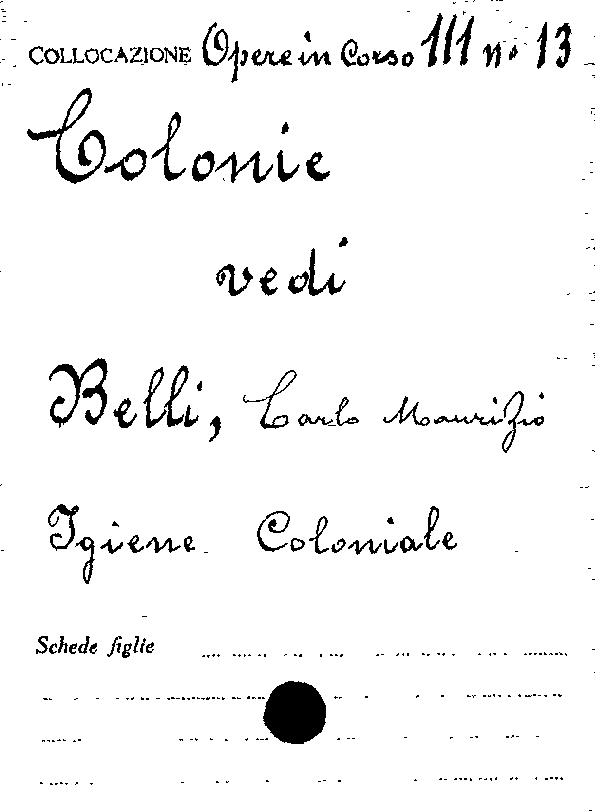 COLLOCAZIONE Opere in Corso 111 nº 13
Colonie
vedi
Belli, Carlo Maurizio
Igiene Coloniale
Schede figlie